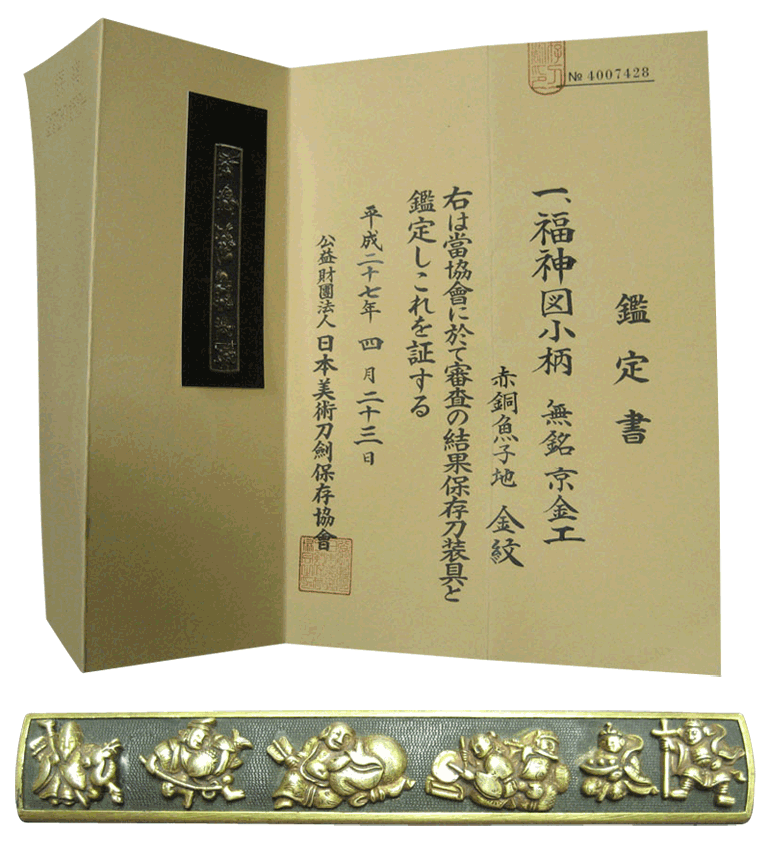 № 4007428
鑑定書
一、福神図小柄 無銘 京金工
赤銅魚子地 金紋
右は當協會に於て審査の結果保存刀装具と
鑑定しこれを証する
平成二十七年 四月二十三日
公益財團法人 日本美術刀劍保存協會